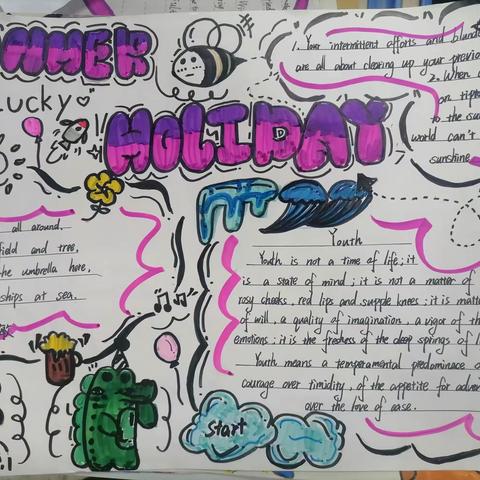 MMER
Lucky
HOLIDAY
1. Your intermittent efforts and
are all about clearing up your previous
2. When
on
to the su
world can't
sunshine
all around.
field and tree,
the umbrella here,
ships at sea.
Youth
Youth is not a time of life; it
is a state of mind; it is not a matter of
rosy cheeks, red lips and supple knees; it is matt
of will, a quality of imagination, a vigor of th
emotions; it is the freshess of the deep springs of l
Youth means a temperamental predominace o
courage over timidity, of the appetite for adven
over the love of ease.
Start